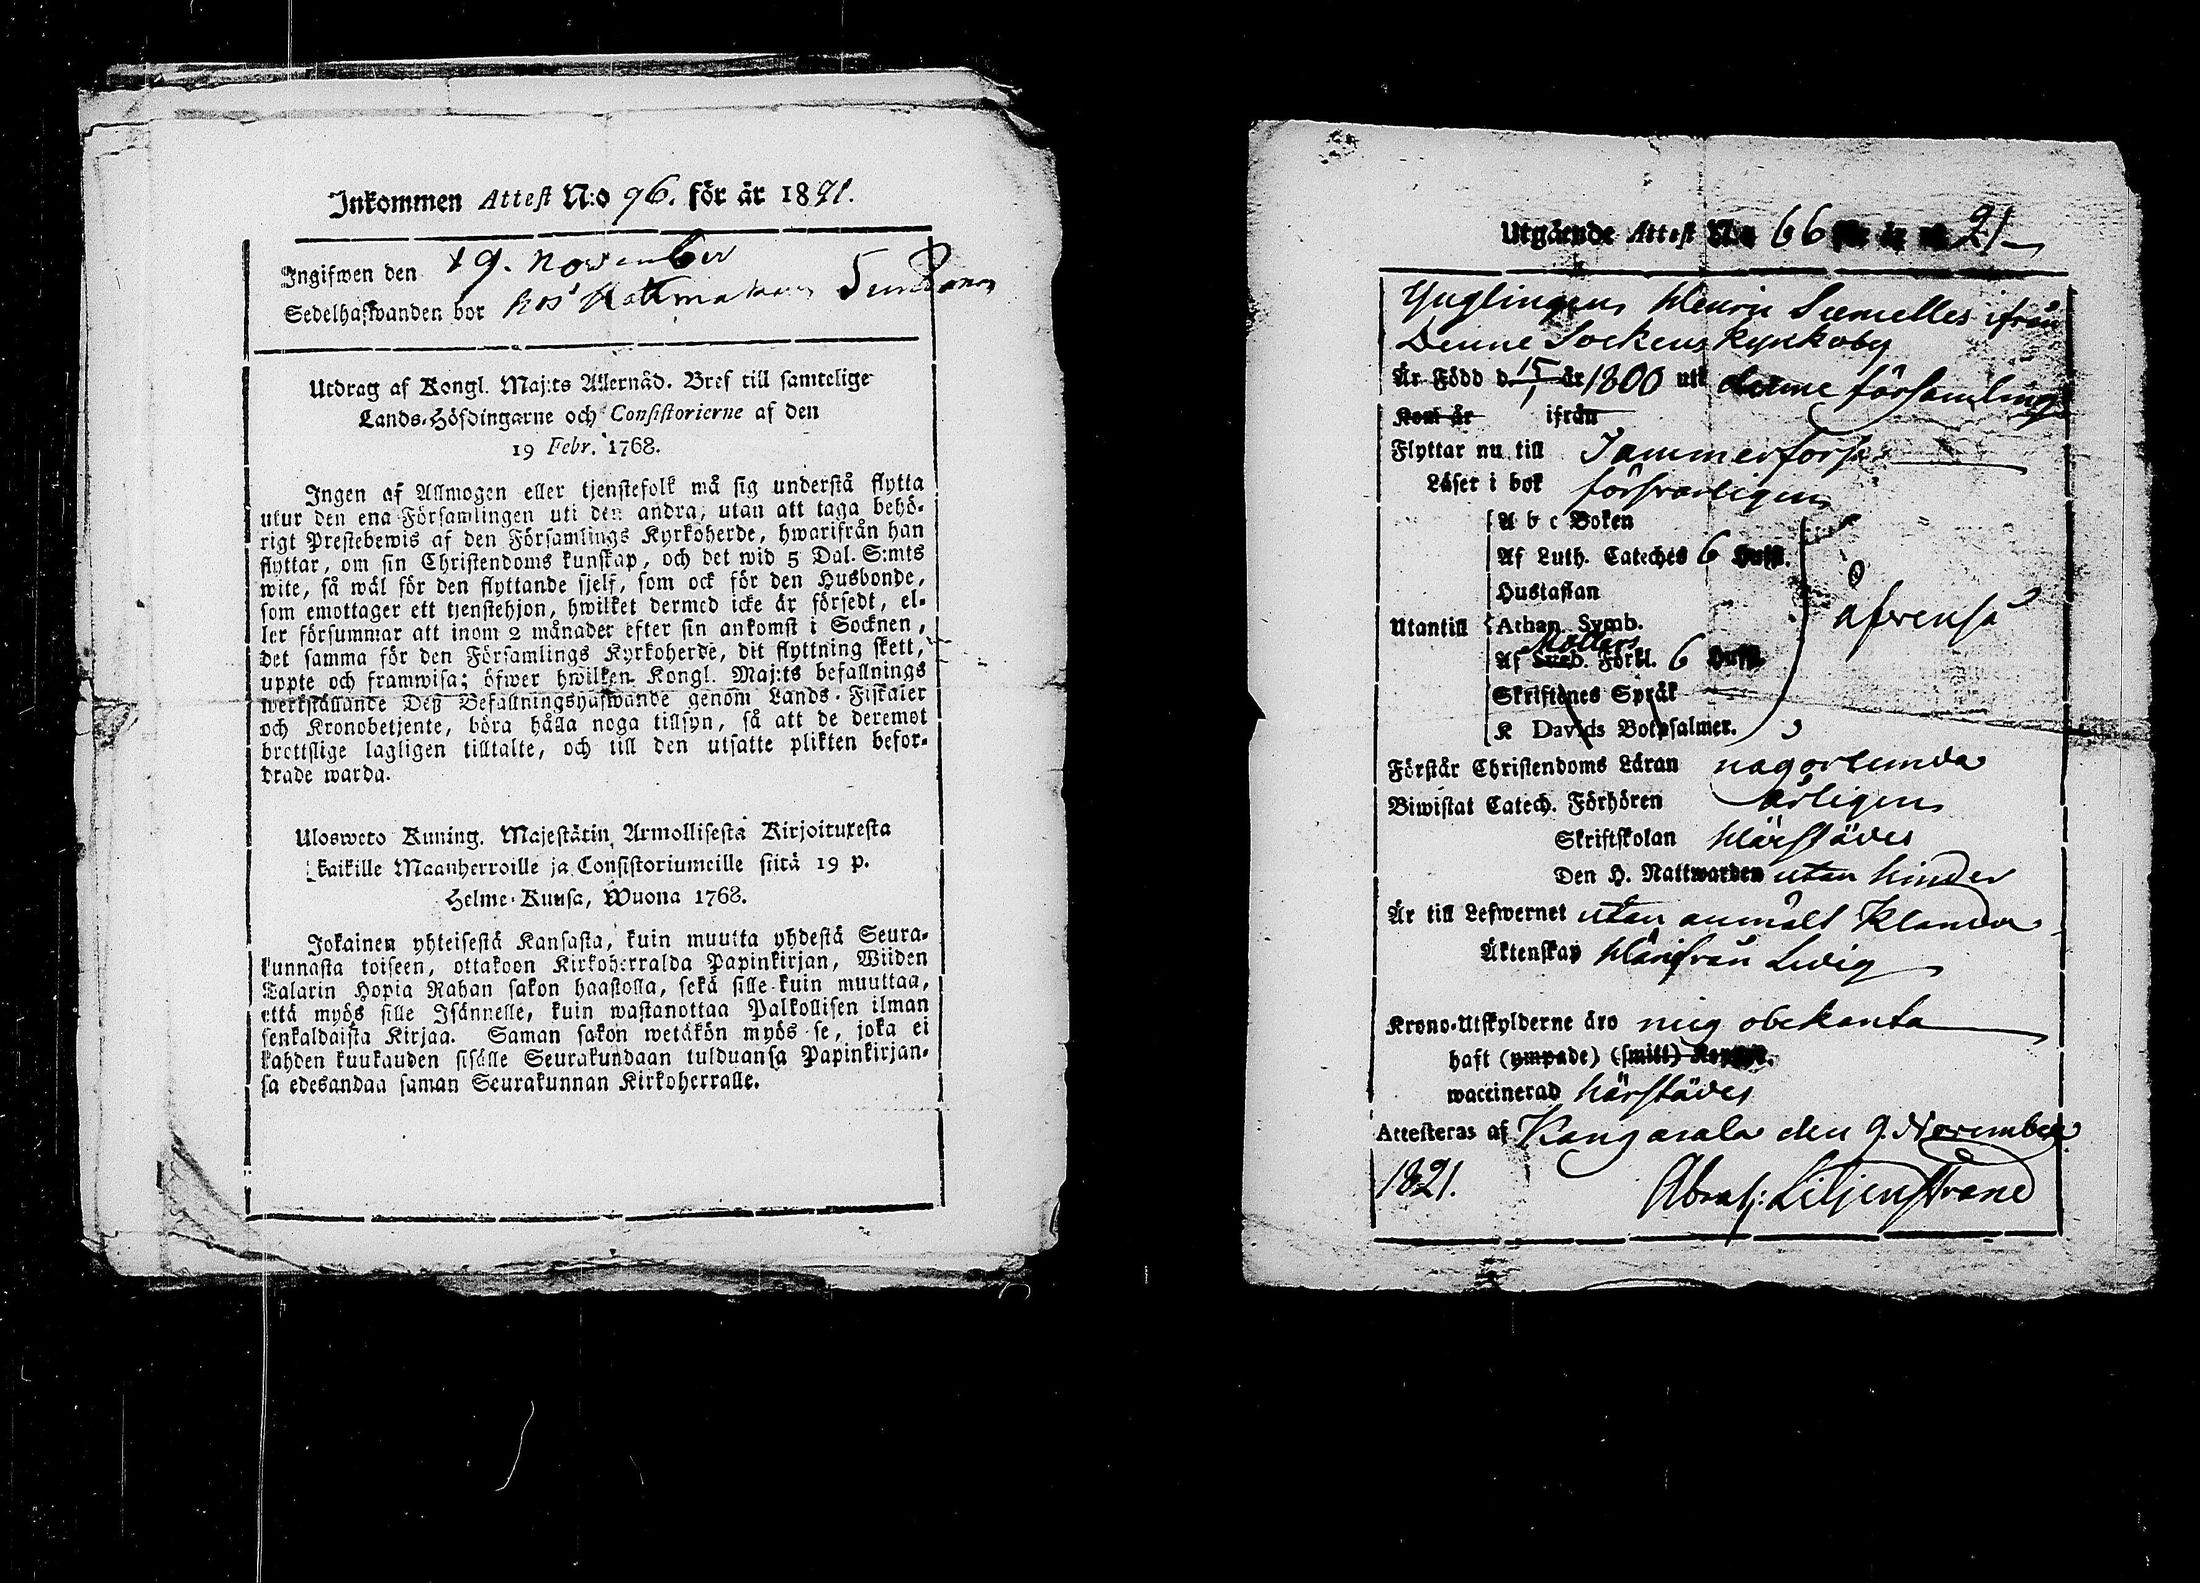 Inkommen Attest N:o 96. för år 1821.
Ingifwen den 19. november
Sedelhafwanden bor hos Hattmakaren Sundman
Utdrag af Kongl. Maj:ts Allernåd. Bref till samtelige
Lands-Höfdingarne och Consistorierne af den
19 Febr. 1768.
Ingen af Allmogen eller tjenstefolk må sig understå flytta
utur den ena Församlingen uti den andra, utan att taga behö-
rigt Prestebewis af den Församlings Kyrkoherde, hwarifrån han
flyttar, om sin Christendoms kunskap, och det wid 5 Dal. S:mts
wite, så wäl för den flyttande sjelf, som ock för den Husbonde,
som emottager ett tjenstehjon, hwilket dermed icke är försedt, el-
ler försummar att inom 2 månader efter sin ankomst i Socknen,
det samma för den Församlings Kyrkoherde, dit flyttning skett,
uppte och framwisa; öfwer hwilken Kongl. Maj:ts befallnings
werkställande Deß Befallningshafwande genom Lands-Fiskaler
och Kronobetjente, böra hålla noga tillsyn, så att de deremot
brottslige lagligen tilltalte, och till den utsatte plikten befor-
drade warda.
Ulosweto Kuning. Majestätin Armollisesta Kirjoituxesta
kaikille Maanherroille ja Consistoriumeille siitä 19 p.
Helme-Kuusa, Wuona 1768.
Jokainen yhteisestä Kansasta, kuin muutta yhdestä Seura-
kunnasta toiseen, ottakoon Kirkoherralda Papinkirjan, Wiiden
Talarin Hopia Rahan sakon haastolla, sekä sille kuin muuttaa,
että myös sille Isännelle, kuin wastanottaa Palkollisen ilman
senkaldaista Kirjaa. Saman sakon wetäkön myös se, joka ei
kahden kuukauden sisälle Seurakundaan tulduansa Papinkirjan-
sa edesandaa saman Seurakunnan Kirkoherralle.
Utgående Attest N:o 66 för år 1821
Ynglingen Henric Samelles ifrån
Denne Sockens Kyrkoby
Är Född d. 15/1 år 1800 uti denne församling
Kom år ifrån
Flyttar nu till Tammerfors
Läser i bok försvarligen
A b c Boken
Af Luth. Cateches 6 Hufst.
Hustaflan
Utantill Athan. Symb.
Möllers
Af Sueb. Förkl. 6 Hufst.
Skriftenes Språk
K Davids Botpsalmer.
åfvenså
Förstår Christendoms Läran någorlunda
Biwistat Catech. Förhören årligen
Skriftskolan härstädes
Den H. Nattwarden utan hinder
Är till Lefwernet utan anmält klander
Äktenskap härifrån Ledig
Krono-Utskylderne äro mig obekanta
haft (ympade) (smitt) Koppor.
waccinerad härstädes
Attesteras af Kangasala den 9. November
1821. Abrah: Liljenstrand